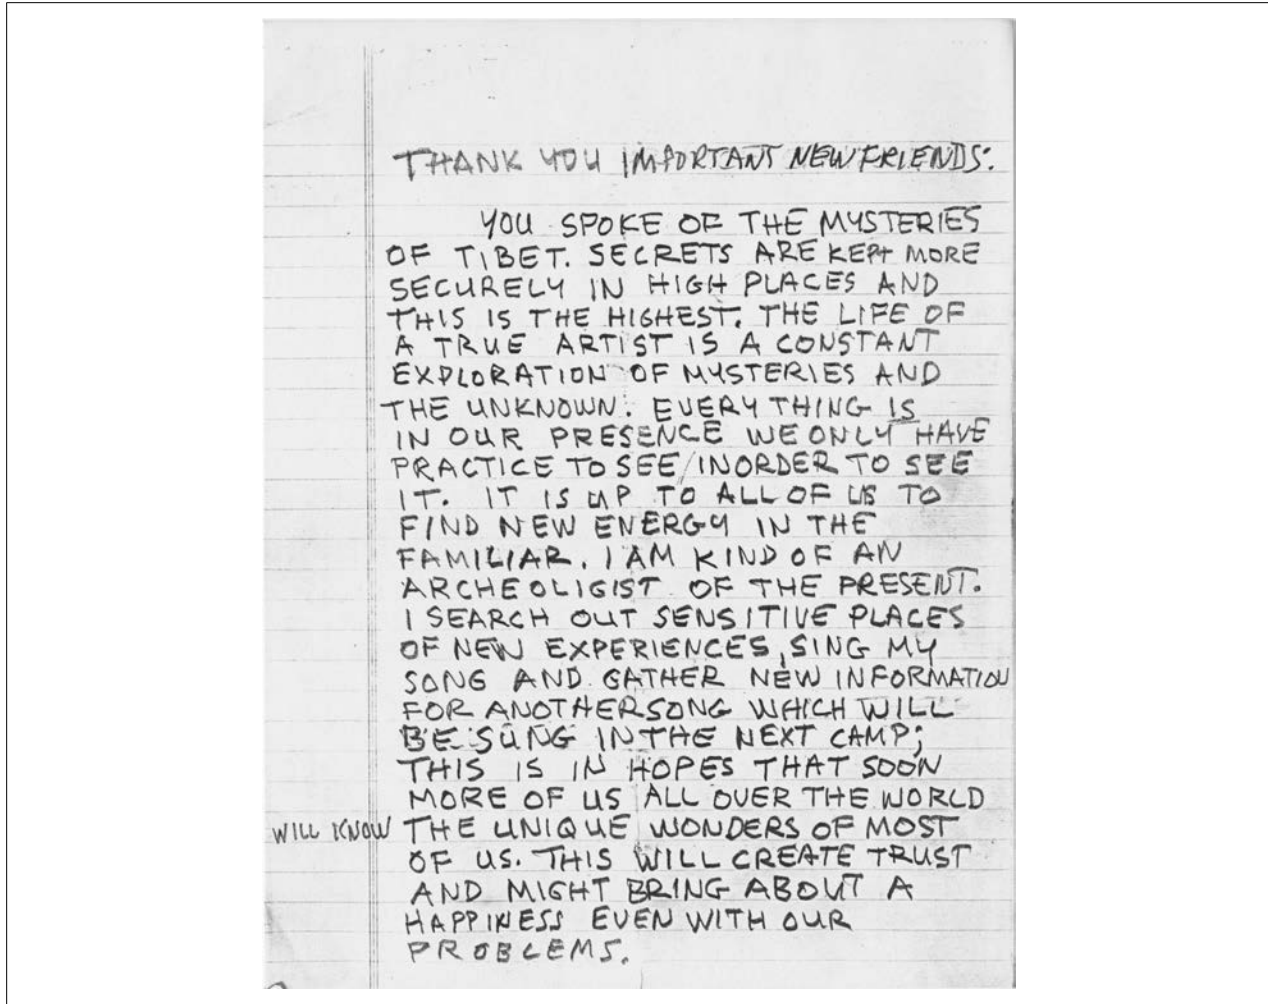 THANK YOU IMPORTANT NEW FRIENDS:
YOU SPOKE OF THE MYSTERIES
OF TIBET. SECRETS ARE KEPT MORE
SECURELY IN HIGH PLACES AND
THIS IS THE HIGHEST. THE LIFE OF
A TRUE ARTIST IS A CONSTANT
EXPLORATION OF MYSTERIES AND
THE UNKNOWN. EVERYTHING IS
IN OUR PRESENCE WE ONLY HAVE
PRACTICE TO SEE/INORDER TO SEE
IT. IT IS UP TO ALL OF US TO
FIND NEW ENERGY IN THE
FAMILIAR. I AM KIND OF AN
ARCHEOLIGIST OF THE PRESENT.
I SEARCH OUT SENSITIVE PLACES
OF NEW EXPERIENCES, SING MY
SONG AND GATHER NEW INFORMATION
FOR ANOTHER SONG WHICH WILL
BE SUNG IN THE NEXT CAMP;
THIS IS IN HOPES THAT SOON
MORE OF US ALL OVER THE WORLD
WILL KNOW THE UNIQUE WONDERS OF MOST
OF US. THIS WILL CREATE TRUST
AND MIGHT BRING ABOUT A
HAPPINESS EVEN WITH OUR
PROBLEMS.